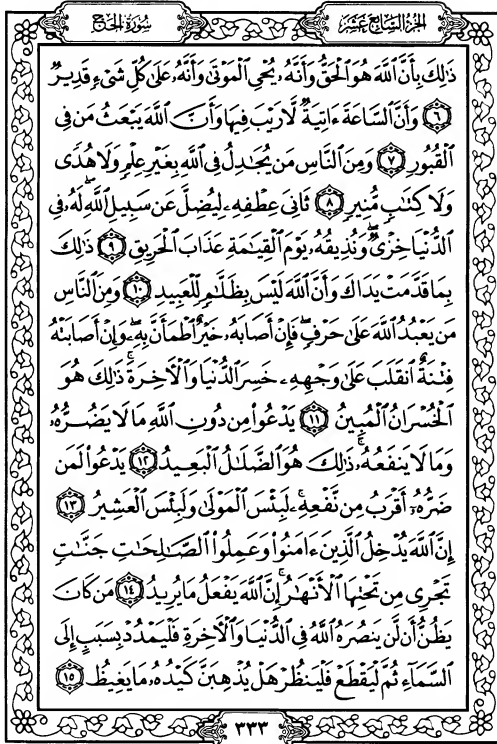 الجزء السابع عشر
سورة الحج
ذَٰلِكَ بِأَنَّ ٱللَّهَ هُوَ ٱلْحَقُّ وَأَنَّهُۥ يُحْىِ ٱلْمَوْتَىٰ وَأَنَّهُۥ عَلَىٰ كُلِّ شَىْءٍ قَدِيرٌ
٦ وَأَنَّ ٱلسَّاعَةَ ءَاتِيَةٌ لَّا رَيْبَ فِيهَا وَأَنَّ ٱللَّهَ يَبْعَثُ مَن فِى
ٱلْقُبُورِ ٧ وَمِنَ ٱلنَّاسِ مَن يُجَٰدِلُ فِى ٱللَّهِ بِغَيْرِ عِلْمٍ وَلَا هُدًى
وَلَا كِتَٰبٍ مُّنِيرٍ ٨ ثَانِىَ عِطْفِهِۦ لِيُضِلَّ عَن سَبِيلِ ٱللَّهِ ۖ لَهُۥ فِى
ٱلدُّنْيَا خِزْىٌ ۖ وَنُذِيقُهُۥ يَوْمَ ٱلْقِيَٰمَةِ عَذَابَ ٱلْحَرِيقِ ٩ ذَٰلِكَ
بِمَا قَدَّمَتْ يَدَاكَ وَأَنَّ ٱللَّهَ لَيْسَ بِظَلَّٰمٍ لِّلْعَبِيدِ ١٠ وَمِنَ ٱلنَّاسِ
مَن يَعْبُدُ ٱللَّهَ عَلَىٰ حَرْفٍ ۖ فَإِنْ أَصَابَهُۥ خَيْرٌ ٱطْمَأَنَّ بِهِۦ ۖ وَإِنْ أَصَابَتْهُ
فِتْنَةٌ ٱنقَلَبَ عَلَىٰ وَجْهِهِۦ خَسِرَ ٱلدُّنْيَا وَٱلْءَاخِرَةَ ۚ ذَٰلِكَ هُوَ
ٱلْخُسْرَانُ ٱلْمُبِينُ ١١ يَدْعُوا۟ مِن دُونِ ٱللَّهِ مَا لَا يَضُرُّهُۥ
وَمَا لَا يَنفَعُهُۥ ۚ ذَٰلِكَ هُوَ ٱلضَّلَٰلُ ٱلْبَعِيدُ ١٢ يَدْعُوا۟ لَمَن
ضَرُّهُۥٓ أَقْرَبُ مِن نَّفْعِهِۦ ۚ لَبِئْسَ ٱلْمَوْلَىٰ وَلَبِئْسَ ٱلْعَشِيرُ ١٣
إِنَّ ٱللَّهَ يُدْخِلُ ٱلَّذِينَ ءَامَنُوا۟ وَعَمِلُوا۟ ٱلصَّٰلِحَٰتِ جَنَّٰتٍ
تَجْرِى مِن تَحْتِهَا ٱلْأَنْهَٰرُ ۚ إِنَّ ٱللَّهَ يَفْعَلُ مَا يُرِيدُ ١٤ مَن كَانَ
يَظُنُّ أَن لَّن يَنصُرَهُ ٱللَّهُ فِى ٱلدُّنْيَا وَٱلْءَاخِرَةِ فَلْيَمْدُدْ بِسَبَبٍ إِلَى
ٱلسَّمَآءِ ثُمَّ لْيَقْطَعْ فَلْيَنظُرْ هَلْ يُذْهِبَنَّ كَيْدُهُۥ مَا يَغِيظُ ١٥
٣٣٣